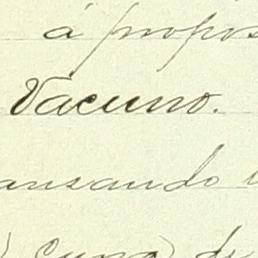 á propos
Vacuno.
ansando
Cuno de